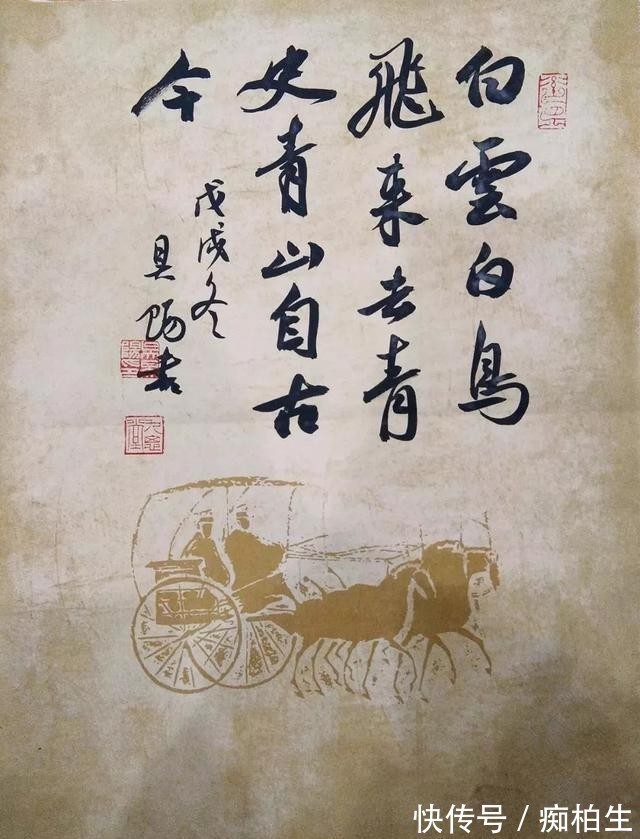 白雲白鳥
飛来去青
史青山自古
今
戊戌冬
吴陽書
快传号 / 痴柏生